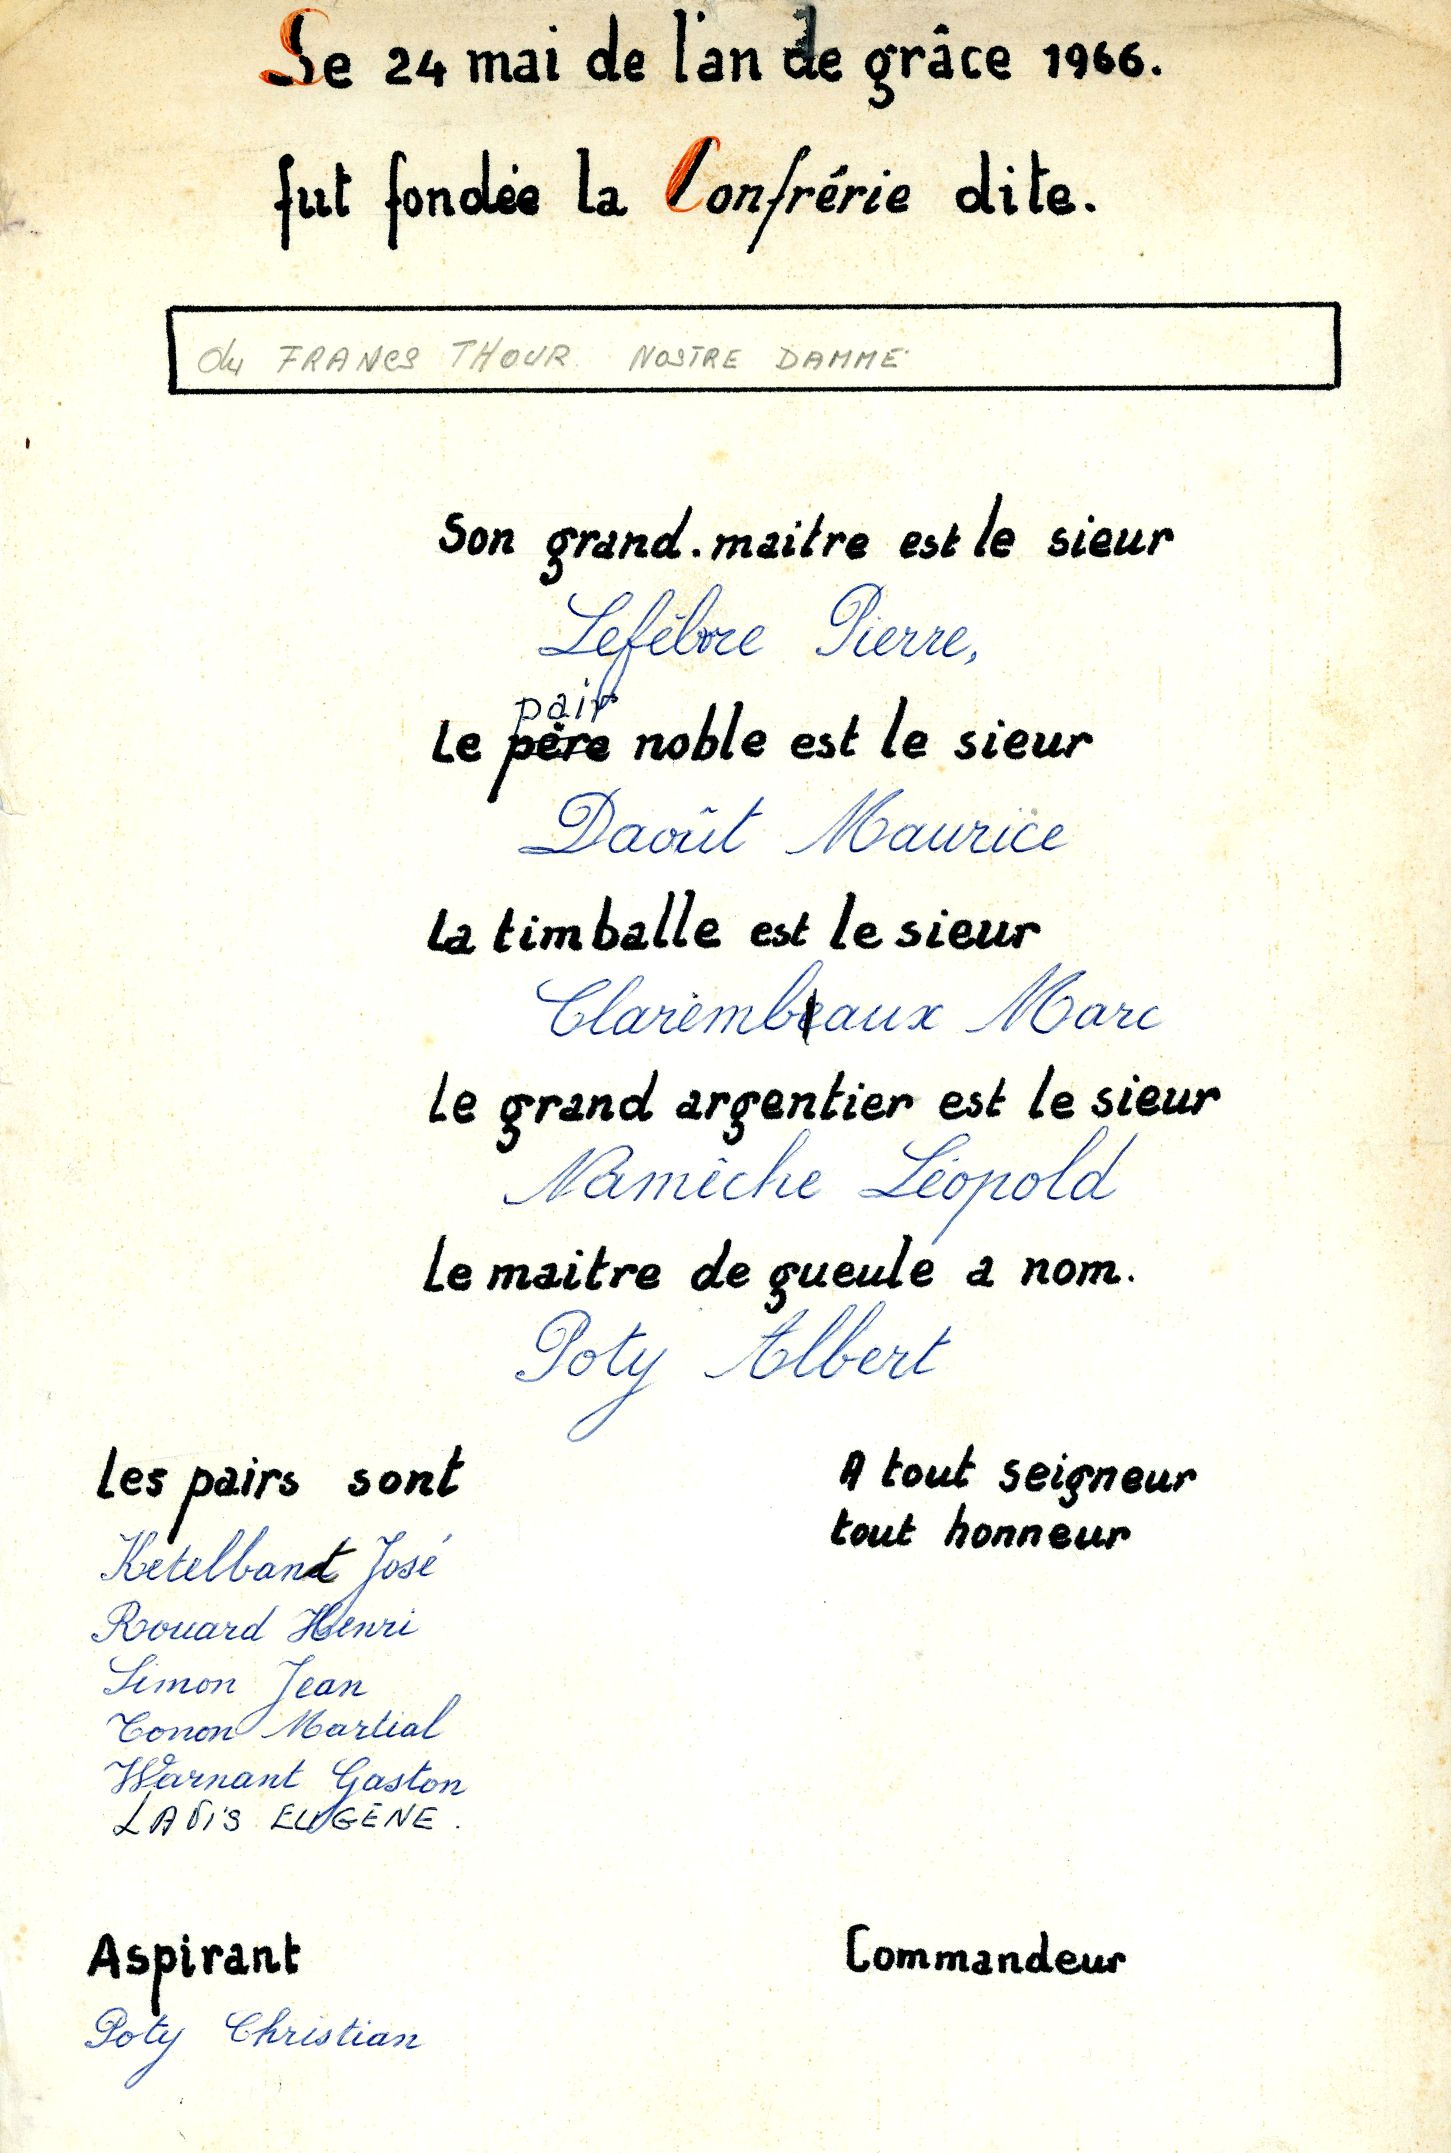 Le 24 mai de l'an de grâce 1966.
fut fondée la Confrérie dite.
du FRANCS THOUR NOSTRE DAMME
Son grand-maitre est le sieur
Lefêbvre Pierre,
pair
Le père noble est le sieur
Daoût Maurice
La timballe est le sieur
Clarembeaux Marc
Le grand argentier est le sieur
Namêche Léopold
Le maitre de gueule a nom.
Poty Albert
Les pairs sont
Ketelbant José
Rouard Henri
Simon Jean
Tonon Martial
Warnant Gaston
EUGÈNE.
A tout seigneur
tout honneur
Aspirant
Poty Christian
Commandeur